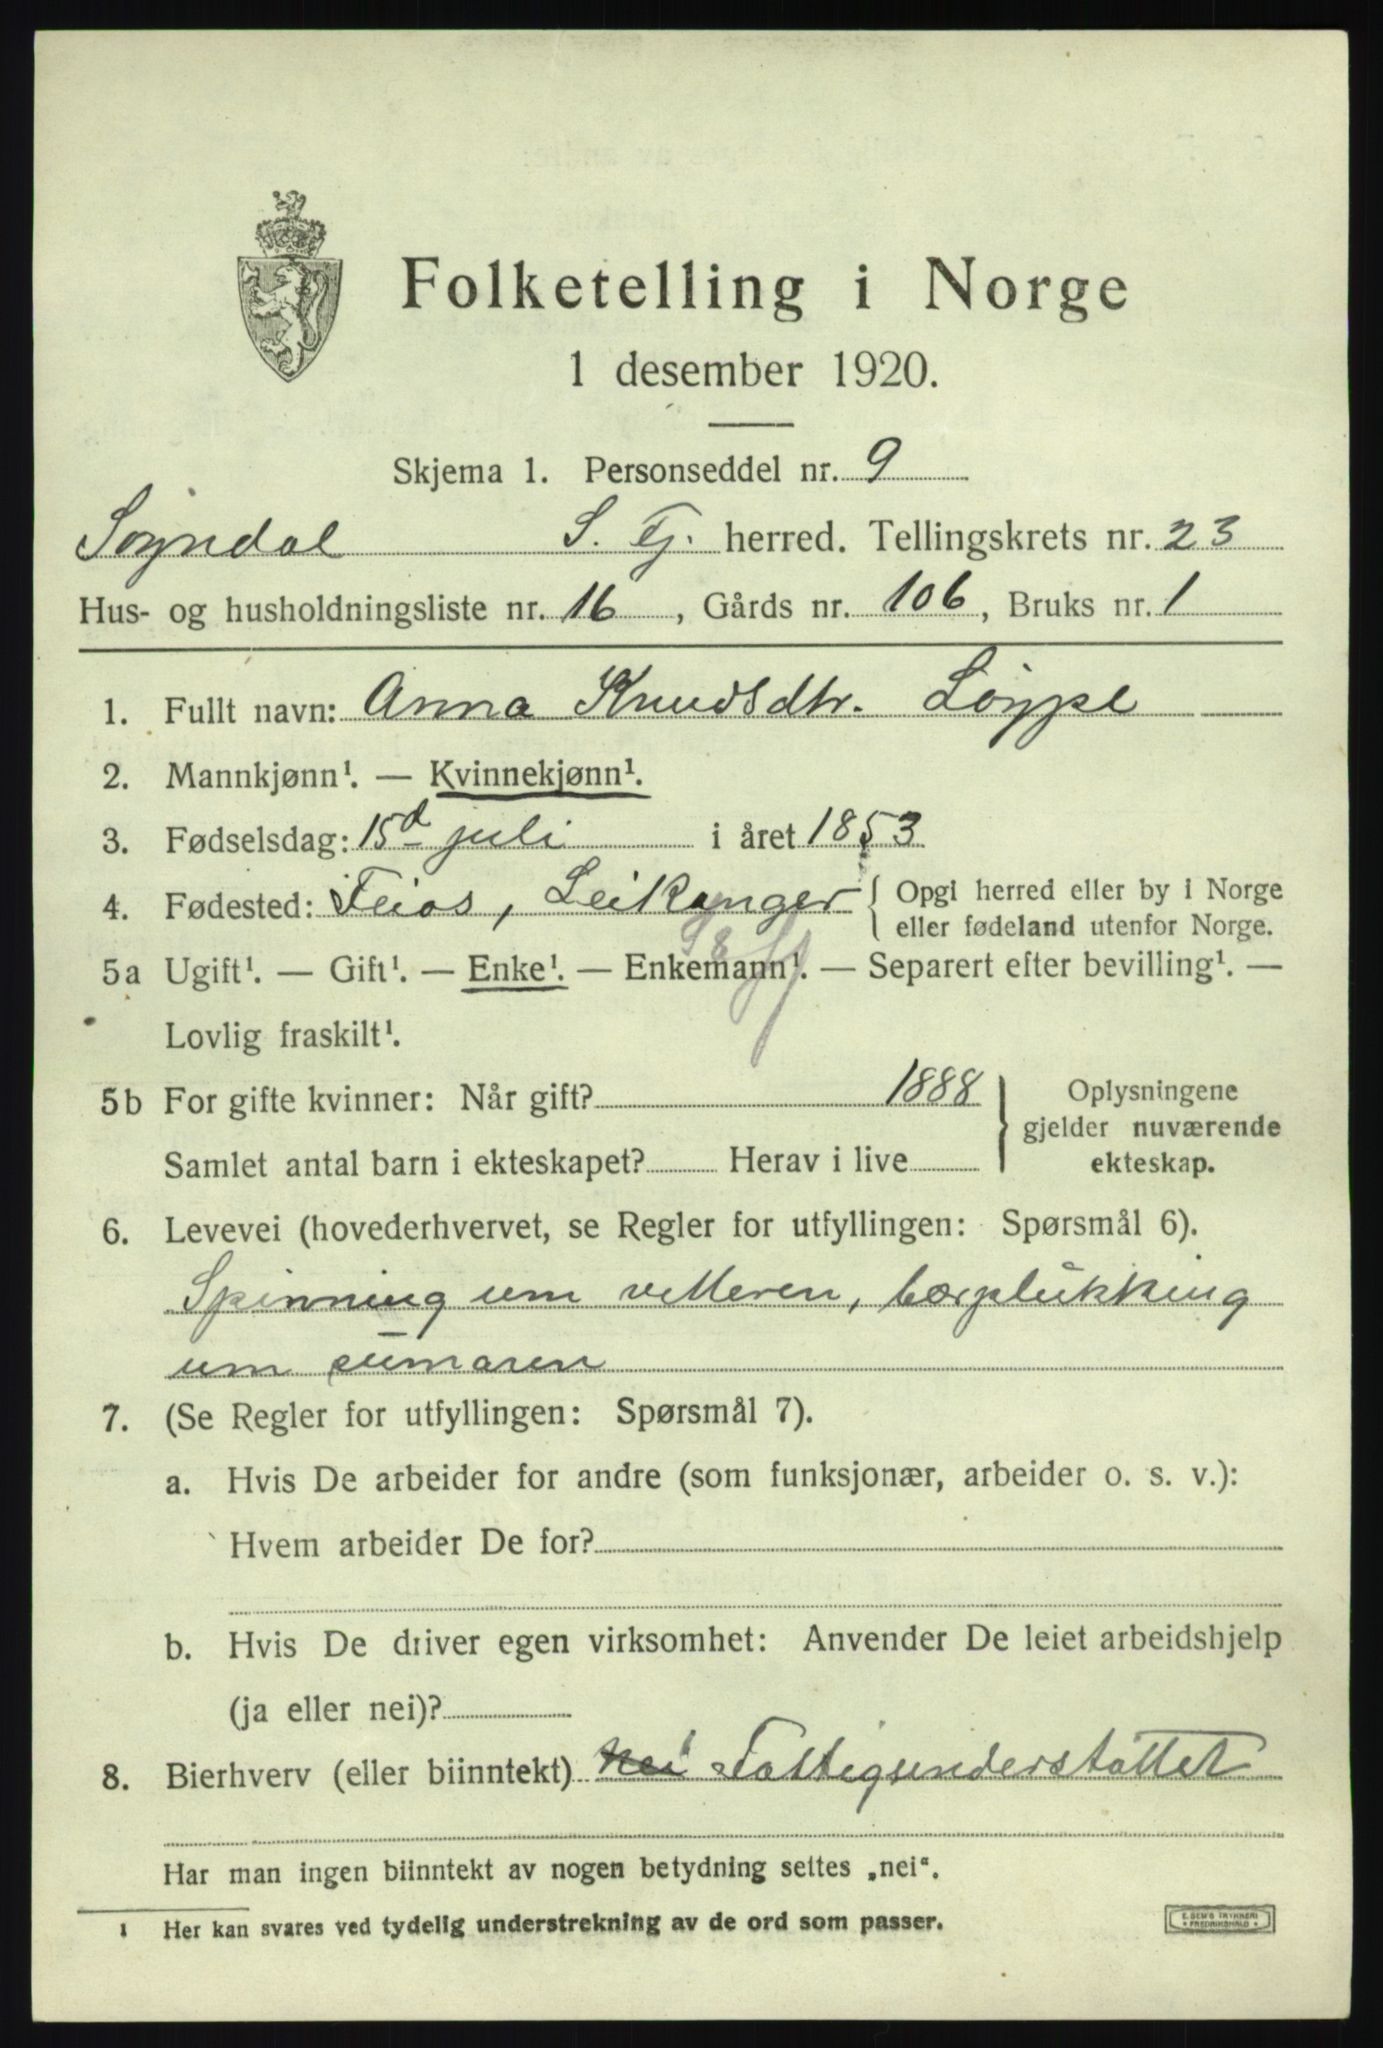 Folketelling i Norge
1 desember 1920.
Skjema 1. Personseddel nr. 9
Sogndal S. Fj. herred. Tellingskrets nr. 23
Hus- og husholdningsliste nr. 16, Gårds nr. 106, Bruks nr. 1
1. Fullt navn: Anna Knudsdtr. Løype
2. Mannkjønn¹. — Kvinnekjønn¹.
3. Fødselsdag: 15d juli i året 1853
4. Fødested: Feios, Leikanger { Opgi herred eller by i Norge
eller fødeland utenfor Norge.
5a Ugift¹. — Gift¹. — Enke¹. — Enkemann¹. — Separert efter bevilling¹. —
Lovlig fraskilt¹.
5b For gifte kvinner: Når gift? 1888 } Oplysningene
gjelder nuværende
Samlet antal barn i ekteskapet? Herav i live ekteskap.
6. Levevei (hovederhvervet, se Regler for utfyllingen: Spørsmål 6).
Spinning um vetteren, bærplukking
um sumaren
7. (Se Regler for utfyllingen: Spørsmål 7).
a. Hvis De arbeider for andre (som funksjonær, arbeider o. s. v.):
Hvem arbeider De for?
b. Hvis De driver egen virksomhet: Anvender De leiet arbeidshjelp
(ja eller nei)?
8. Bierhverv (eller biinntekt) nei Fattigunderstøttet
Har man ingen biinntekt av nogen betydning settes „nei“.
¹ Her kan svares ved tydelig understrekning av de ord som passer.
E. SEM'S TRYKKERI
FREDRIKSHALD